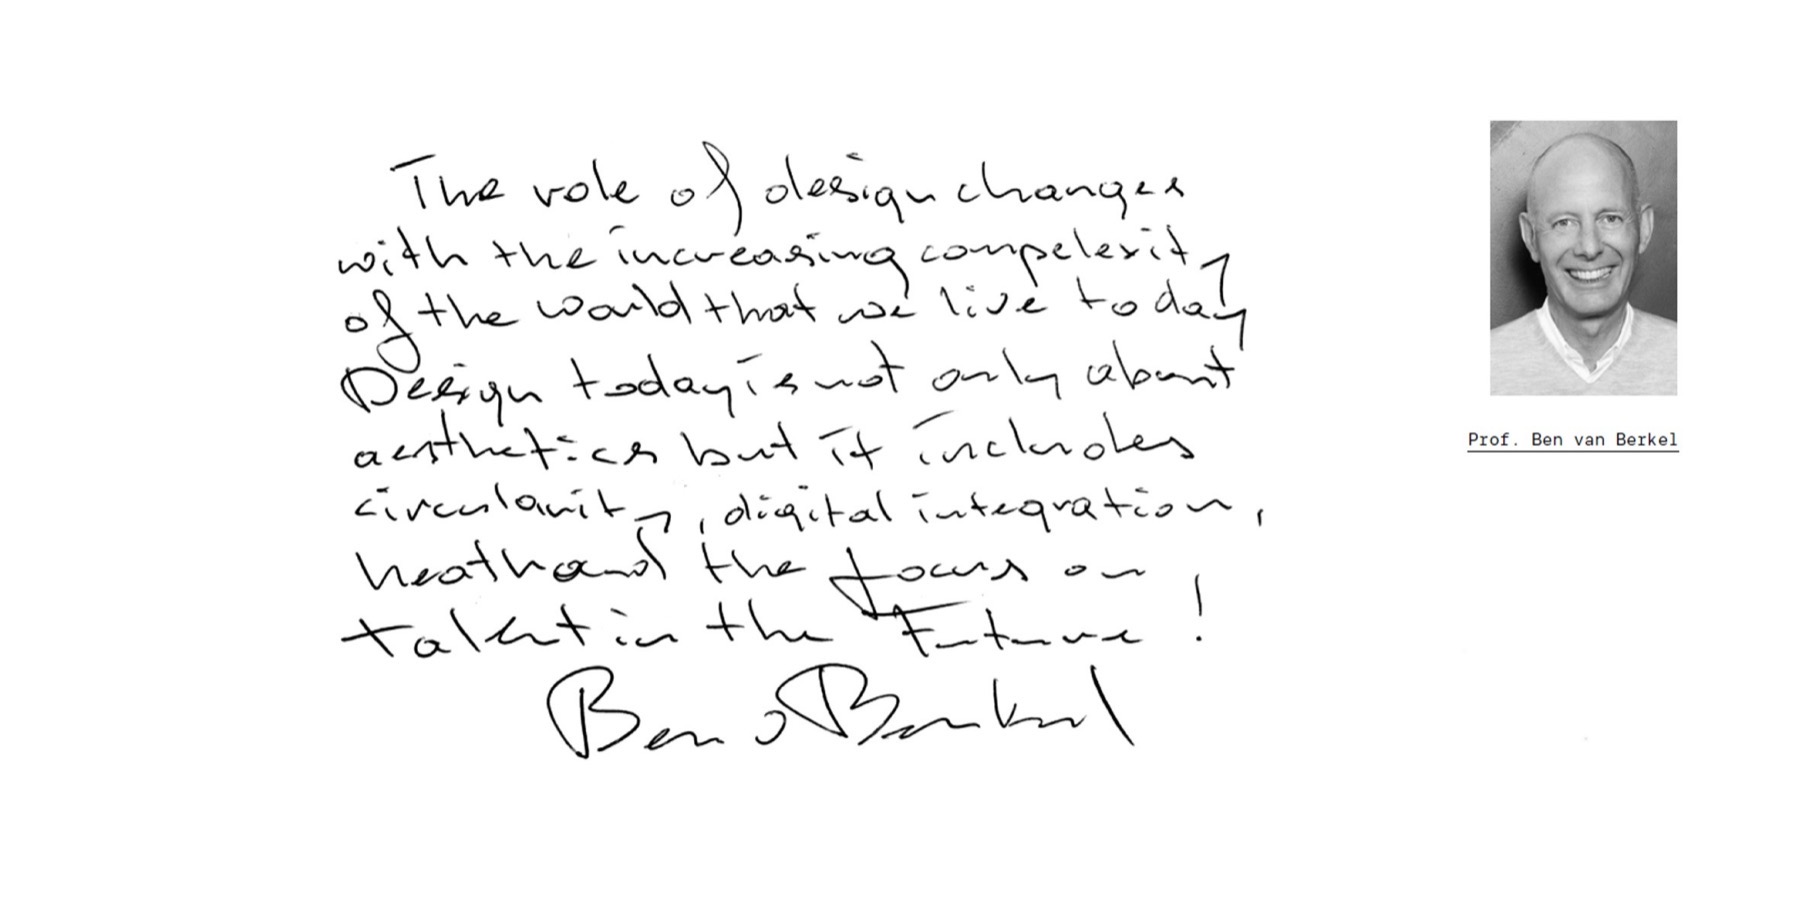 The role of design changes
with the increasing compelexity
of the world that we live today
Design today is not only about
aesthetics but it includes
circularity, digital integration,
heath and the focus on
talent in the Future!
Ben v Berkel
Prof. Ben van Berkel